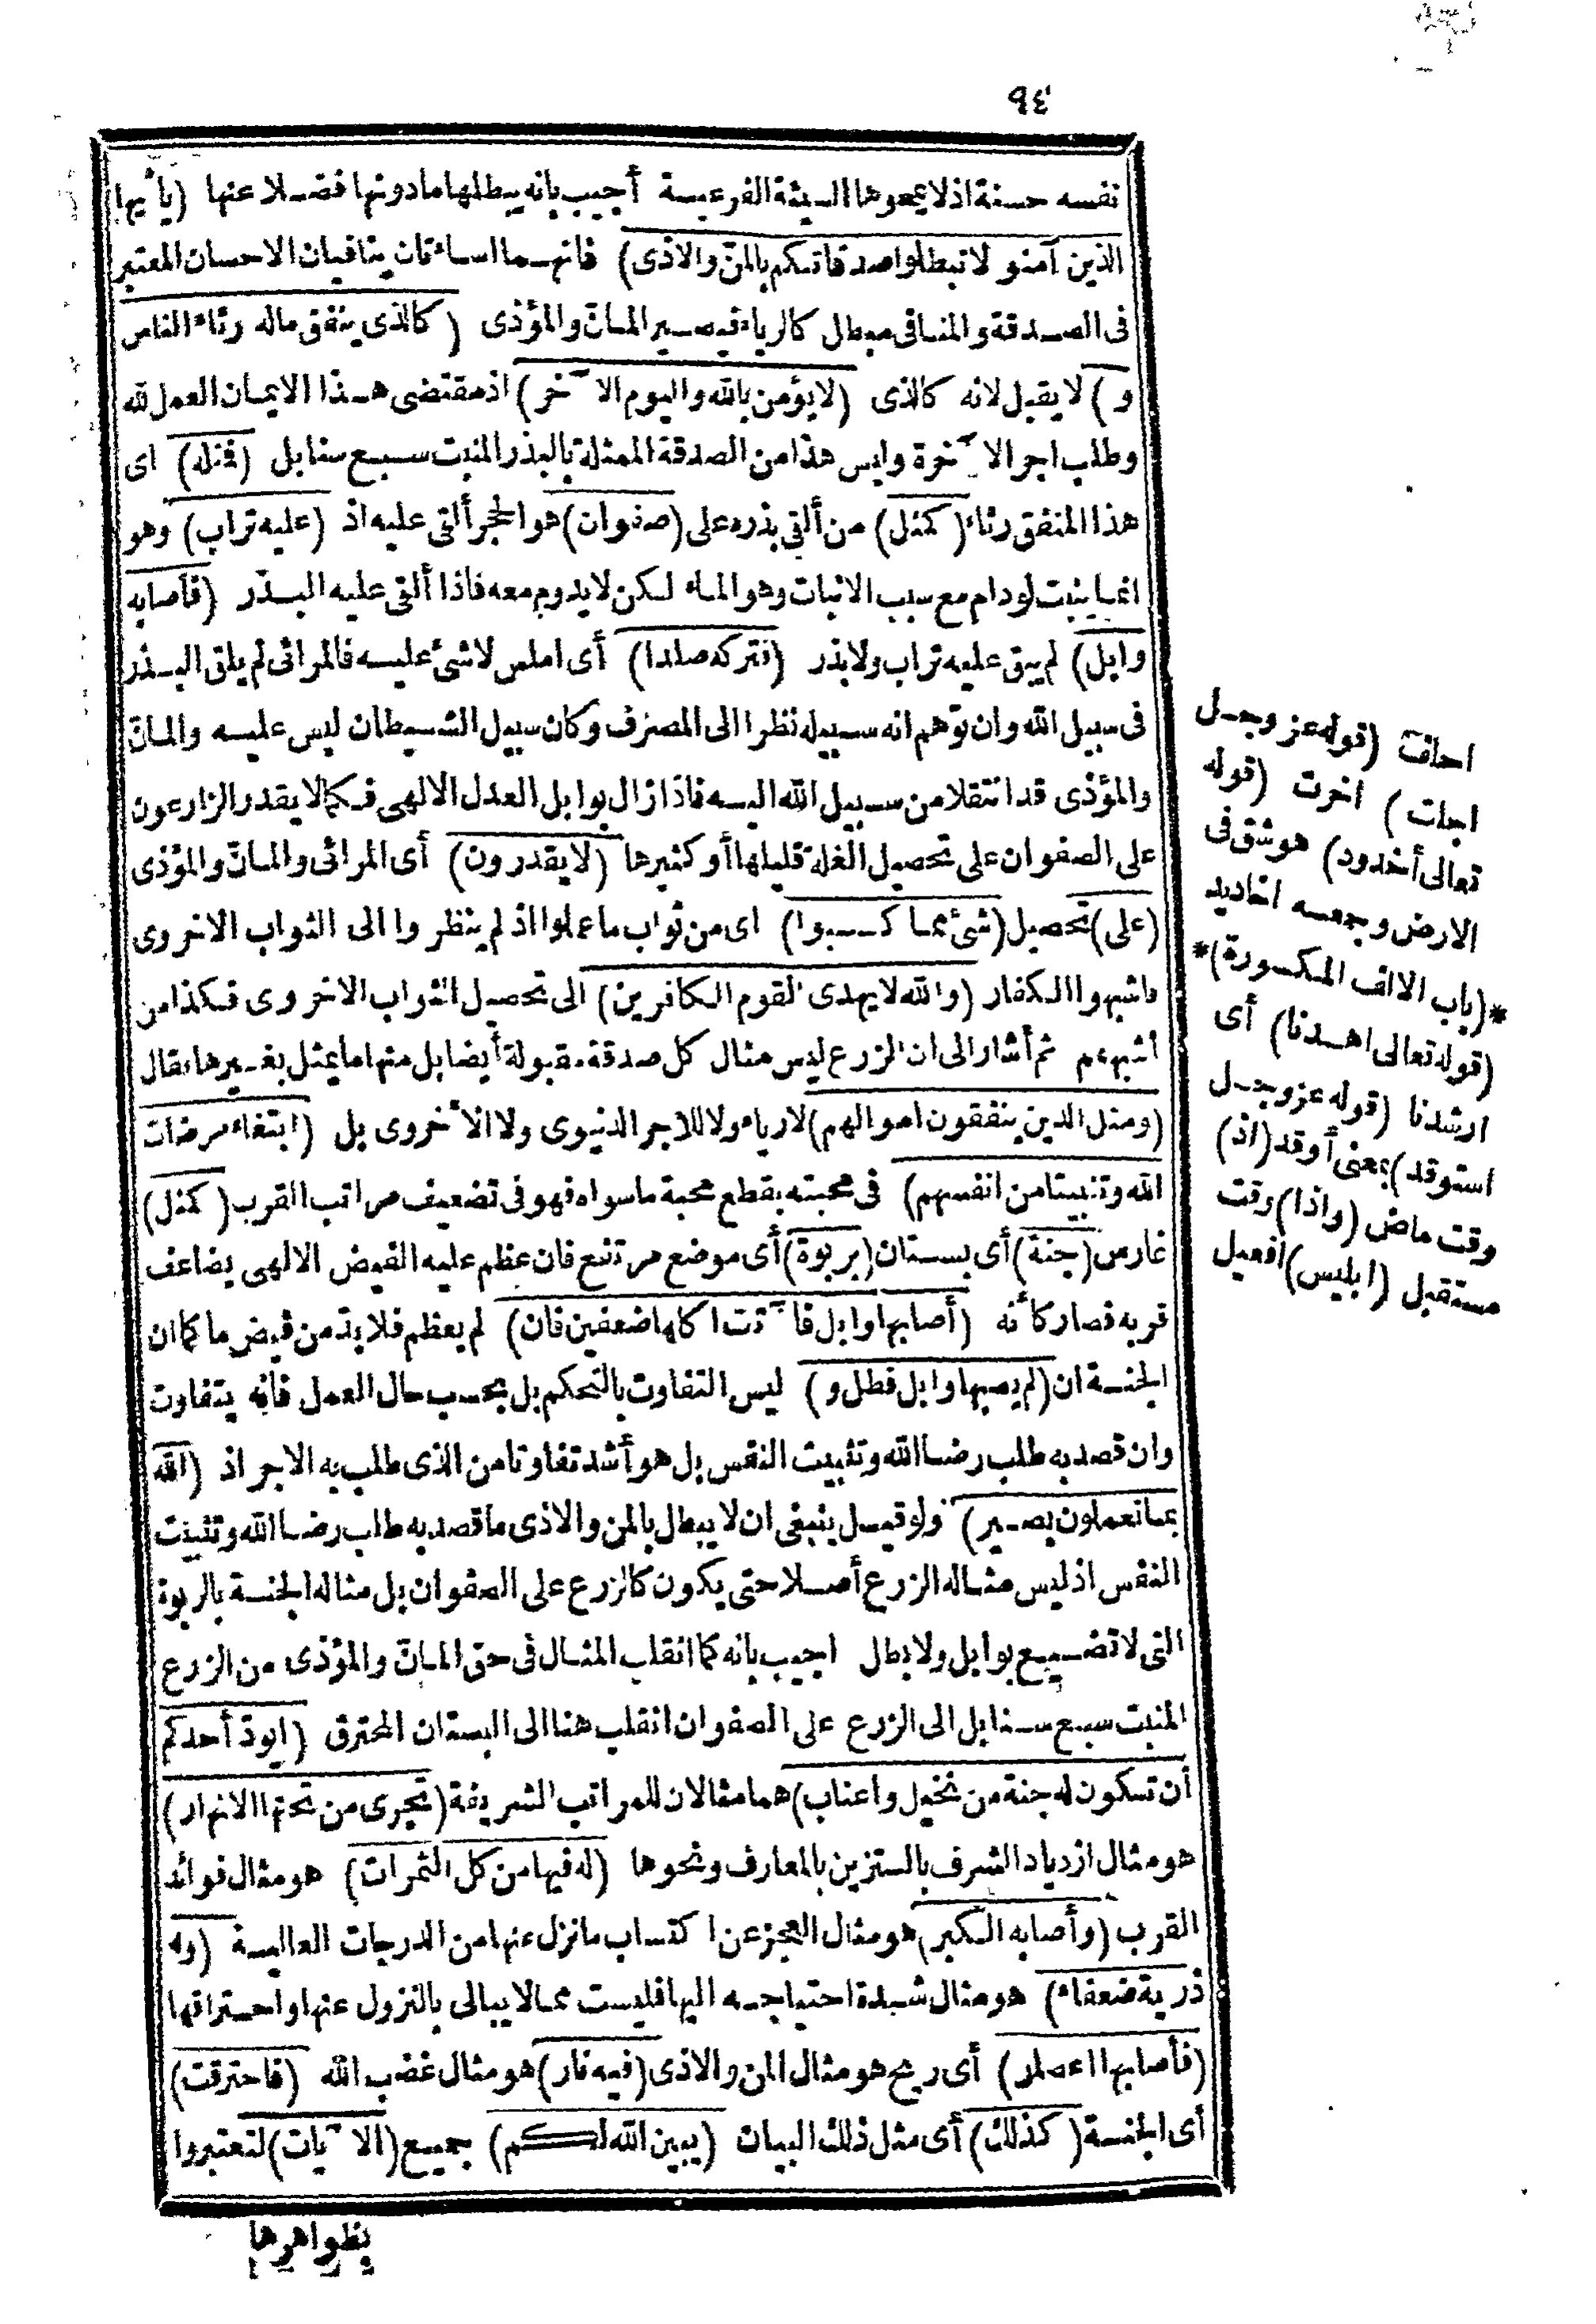 ٩٤
نفسه حسنة اذ لا يمحوها السيئة الفرعية أجيب بانه يبطلها مادونها فضلا عنها (يا أيها
الذين آمنو لا تبطلوا صدقاتكم بالمنّ والاذى) فانهما اساءتان ينافيان الاحسان المعتبر
فى الصدقة والمنافى مبطل كالرياء فيصير المانّ والمؤذى (كالذى ينفق ماله رئاء الناس
و) لا يقبل لانه كالذى (لا يؤمن بالله واليوم الآخر) اذ مقتضى هذا الايمان العمل لله
وطلب اجر الآخرة وليس هذا من الصدقة الممثلة بالبذر المنبت سبع سنابل (فمثله) اى
هذا المنفق رئاء (كمثل) من ألقى بذره على (صفوان) هو الحجر ألقى عليه اذ (عليه تراب) وهو
انما ينبت لو دام مع سبب الانبات وهو الماء لكن لا يدوم معه فاذا ألقى عليه البذر (فأصابه
وابل) لم يبق عليه تراب ولا بذر (فتركه صلدا) أى املس لا شئ عليه فالمرائى لم يلق البذر
فى سبيل الله وان توهم انه سبيله نظرا الى المصرف وكان سبيل الشيطان ليس عليه والمانّ
والمؤذى قد انتقلا من سبيل الله اليه فاذا زال بوابل العدل الالهى فكما لا يقدر الزارعون
على الصفوان على تحصيل الغلة قليلها أو كثيرها (لا يقدرون) أى المرائى والمانّ والمؤذى
(على) تحصيل (شئ مما كسبوا) اى من ثواب ما عملوا اذ لم ينظروا الى الثواب الاخروى
فاشبهوا الكفار (والله لا يهدى القوم الكافرين) الى تحصيل الثواب الاخروى فكذا من
أشبههم ثم أشار الى ان الزرع ليس مثال كل صدقة مقبولة أيضا بل منها ما يمثل بغيرها فقال
(ومثل الذين ينفقون اموالهم) لا رياء ولا للاجر الدنيوى ولا الأخروى بل (ابتغاء مرضات
الله وتثبيتا من انفسهم) فى محبته بقطع محبة ما سواه فهو فى تضعيف مراتب القرب (كمثل)
غارس (جنة) أى بستان (بربوة) أى موضع مرتفع فان عظم عليه الفيض الالهى يضاعف
قربه فصار كأنه (أصابها وابل فآتت اكلها ضعفين فان) لم يعظم فلا بد من فيض ما كما ان
الجنة ان (لم يصبها وابل فطل و) ليس التفاوت بالتحكم بل بحسب حال العمل فانه يتفاوت
وان قصد به طلب رضا الله وتثبيت النفس بل هو أشد تفاوتا من الذى طلب به الاجر اذ (الله
بما تعملون بصير) ولو قيل ينبغى ان لا يبطل بالمن والاذى ما قصد به طلب رضا الله وتثبيت
النفس اذ ليس مثاله الزرع أصلا حتى يكون كالزرع على الصفوان بل مثاله الجنة بالربوة
التى لا تضيع بوابل ولا بطل اجيب بانه كما انقلب المثال فى حق المانّ والمؤذى من الزرع
المنبت سبع سنابل الى الزرع على الصفوان انقلب هنا الى البستان المحترق (أيود أحدكم
أن تكون له جنة من نخيل واعناب) هما مثالان للمراتب الشريفة (تجرى من تحتها الانهار)
هو مثال ازدياد الشرف بالتزين بالمعارف ونحوها (له فيها من كل الثمرات) هو مثال فوائد
القرب (وأصابه الكبر) هو مثال العجز عن اكتساب ما نزل عنها من الدرجات العالية (وله
ذرية ضعفاء) هو مثال شدة احتياجه اليها فليست مما لا يبالى بالنزول عنها واحتراقها
(فأصابها اعصار) أى ريح هو مثال المن والاذى (فيه نار) هو مثال غضب الله (فاحترقت)
أى الجنة (كذلك) أى مثل ذلك البيان (يبين الله لكم) جميع (الآيات) لتعتبروا
بظواهرها
(قوله عز وجل
اجلت) اخرت (قوله
تعالى أخدود) هو شق فى
الارض وجمعه اخاديد
*(باب الالف المكسورة)*
(قوله تعالى اهدنا) أى
ارشدنا (قوله عز وجل
استوقد) بمعنى أوقد (اذ)
وقت ماض (واذا) وقت
مستقبل (ابليس) افعيل